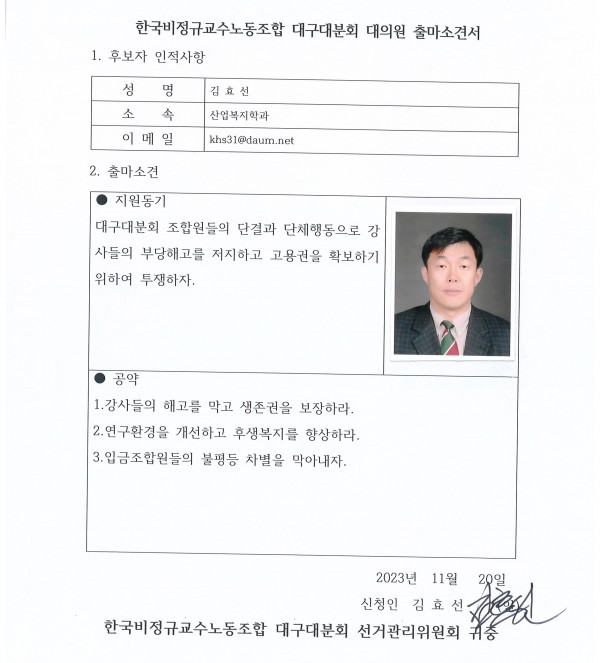 한국비정규교수노동조합 대구대분회 대의원 출마소견서
1. 후보자 인적사항
성 명 김 효 선
소 속 산업복지학과
이 메 일 khs31@daum.net
2. 출마소견
● 지원동기
대구대분회 조합원들의 단결과 단체행동으로 강
사들의 부당해고를 저지하고 고용권을 확보하기
위하여 투쟁하자.
● 공약
1.강사들의 해고를 막고 생존권을 보장하라.
2.연구환경을 개선하고 후생복지를 향상하라.
3.입금조합원들의 불평등 차별을 막아내자.
2023년 11월 20일
신청인 김 효 선
한국비정규교수노동조합 대구대분회 선거관리위원회 귀중